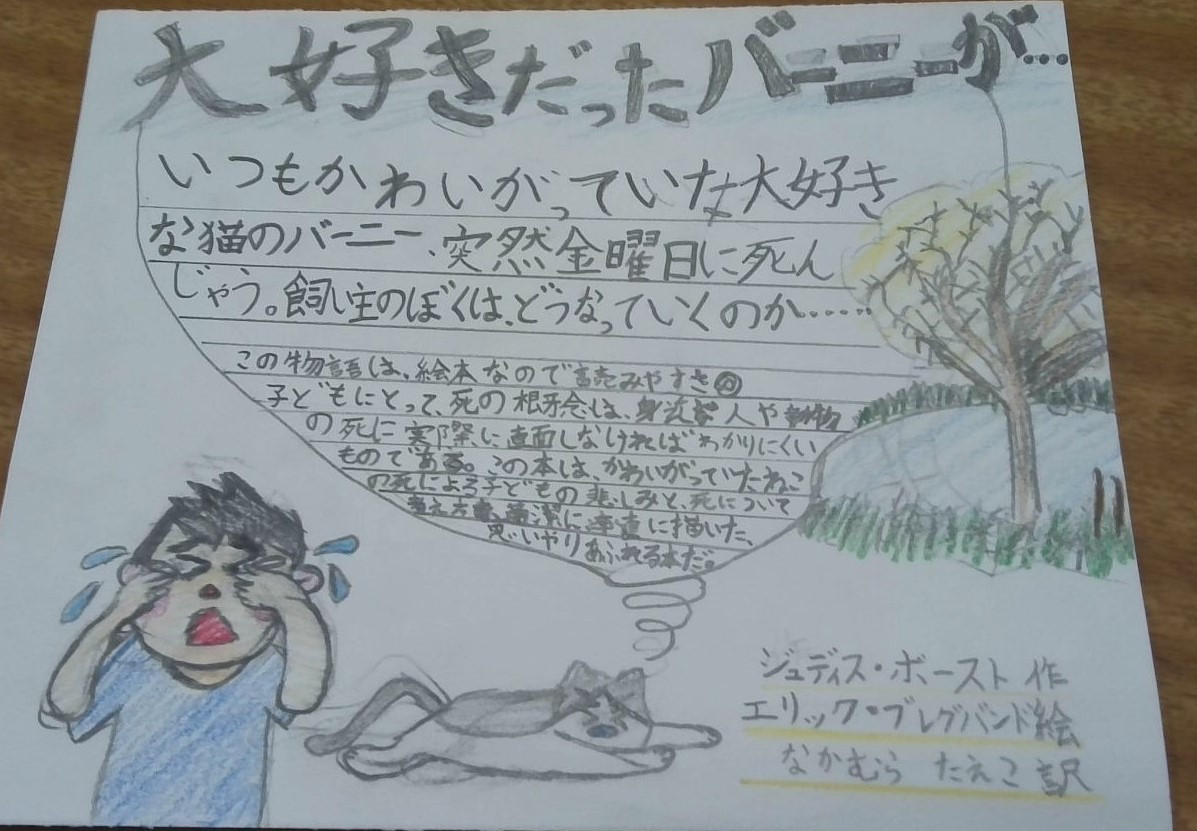 大好きだったバーニーが…
いつもかわいがっていな大好き
な猫のバーニー、突然金曜日に死ん
じゃう。飼い主のぼくは、どうなっていくのか……
この物語は、絵本なので読みやすき
子どもにとって、死の概念は、身近な人や動物
の死に実際に直面しなければわかりにくい
ものである。この本は、かわいがっていたねこ
の死による子どもの悲しみと、死について
考え方を、簡潔に率直に描いた、
思いやりあふれる本だ。
ジュディス・ボースト 作
エリック・ブレグバンド 絵
なかむら たえこ 訳